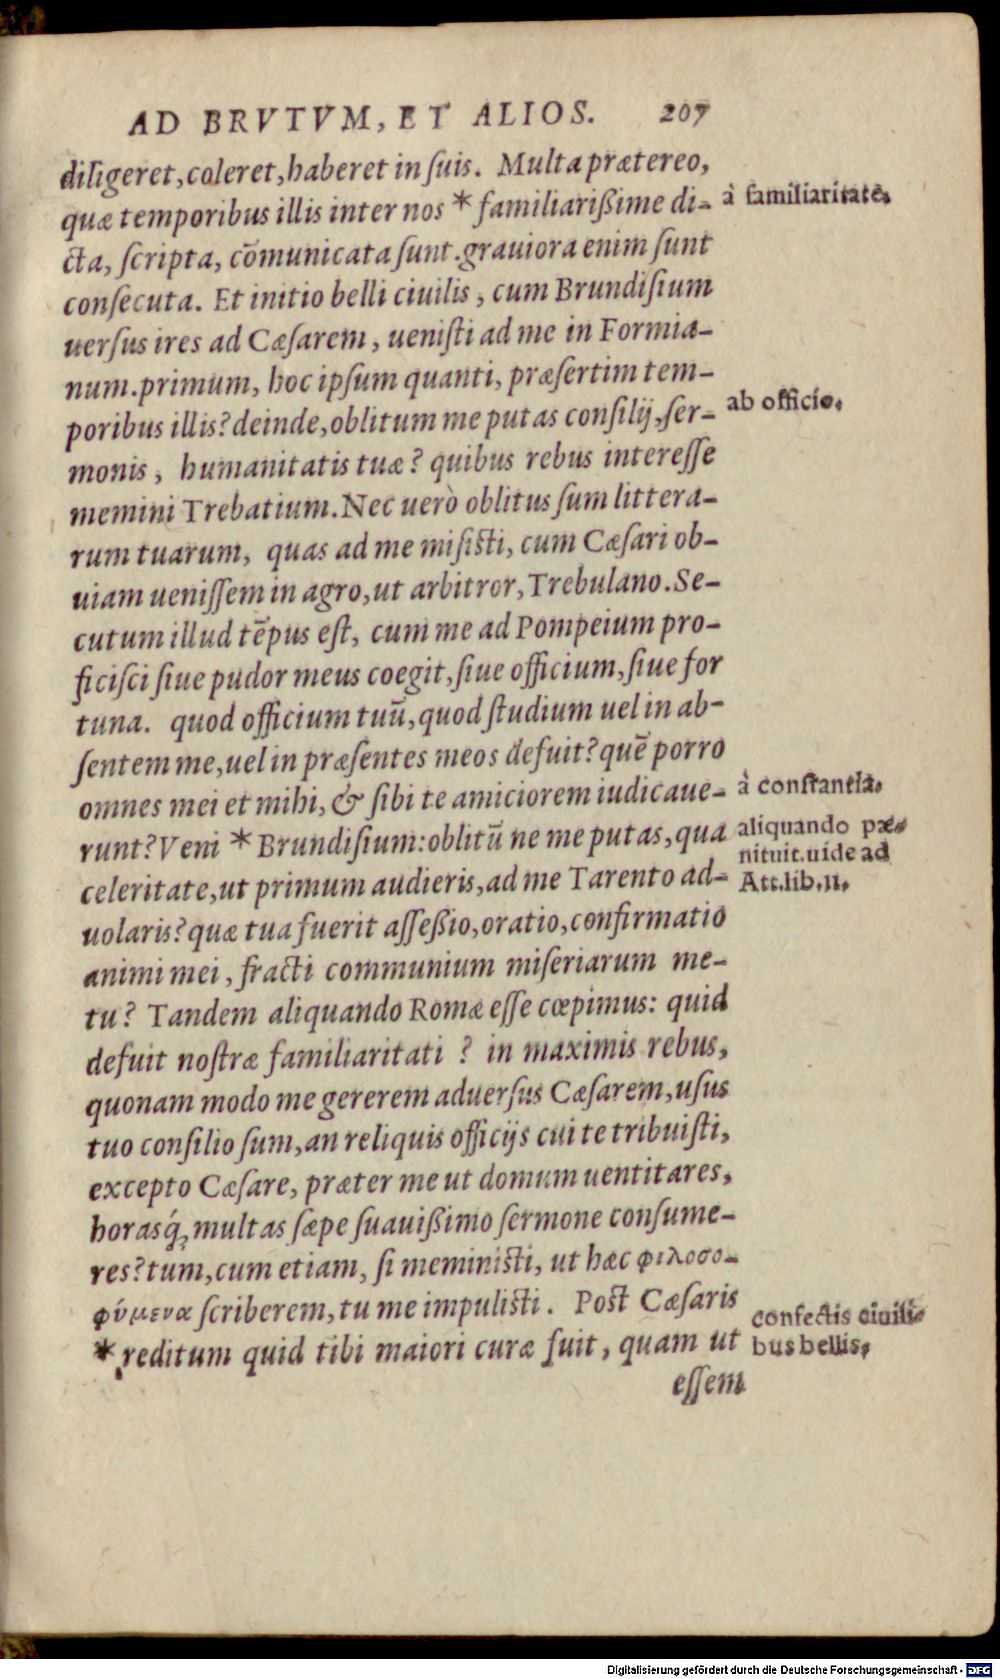 AD BRVTVM, ET ALIOS. 207
diligeret, coleret, haberet in ſuis. Multa prætereo,
quæ temporibus illis inter nos * familiarißime di-
cta, ſcripta, cōmunicata ſunt. grauiora enim ſunt
conſecuta. Et initio belli ciuilis, cum Brundiſium
uerſus ires ad Cæſarem, ueniſti ad me in Formia-
num. primum, hoc ipſum quanti, præſertim tem-
poribus illis? deinde, oblitum me putas conſilij, ſer-
monis, humanitatis tuæ? quibus rebus intereſſe
memini Trebatium. Nec uerò oblitus ſum littera-
rum tuarum, quas ad me miſiſti, cum Cæſari ob-
uiam ueniſſem in agro, ut arbitror, Trebulano. Se-
cutum illud tēpus eſt, cum me ad Pompeium pro-
ficiſci ſiue pudor meus coegit, ſiue officium, ſiue for
tuna. quod officium tuū, quod ſtudium uel in ab-
ſentem me, uel in præſentes meos defuit? quē porro
omnes mei et mihi, & ſibi te amiciorem iudicaue-
runt? Veni * Brundiſium: oblitū ne me putas, qua
celeritate, ut primum audieris, ad me Tarento ad-
uolaris? quæ tua fuerit aſſeßio, oratio, confirmatio
animi mei, fracti communium miſeriarum me-
tu? Tandem aliquando Romæ eſſe cœpimus: quid
defuit noſtræ familiaritati? in maximis rebus,
quonam modo me gererem aduerſus Cæſarem, uſus
tuo conſilio ſum, an reliquis officijs cui te tribuiſti,
excepto Cæſare, præter me ut domum uentitares,
horasq́; multas ſæpe ſuauißimo ſermone conſume-
res? tum, cum etiam, ſi meminiſti, ut hæc φιλοσο-
φύμενα ſcriberem, tu me impuliſti. Poſt Cæſaris
* reditum quid tibi maiori curæ fuit, quam ut
eſſem
à familiaritate.
ab officio.
à conſtantia.
aliquando pæ-
nituit. uide ad
Att. lib. 11.
confectis ciuili-
bus bellis.
Digitalisierung gefördert durch die Deutsche Forschungsgemeinschaft - DFG